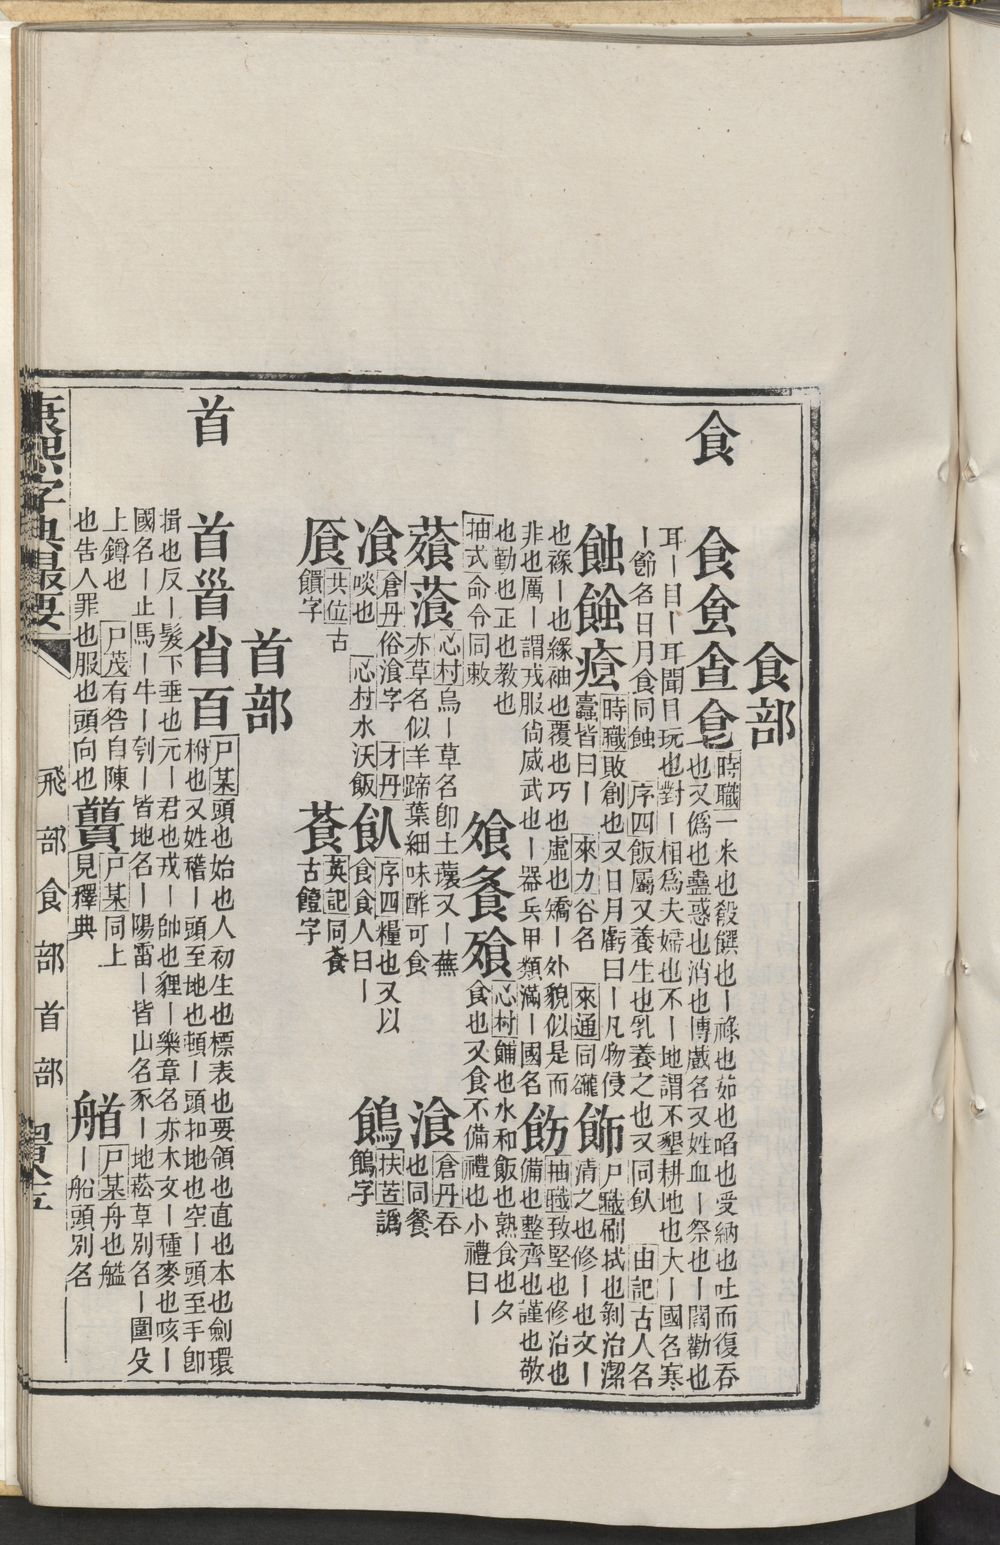 食部
食
食
時職一米也殽饌也ー祿也茹也啗也受納也吐而復吞
也又僞也蠱惑也消也博戲名又姓血ー祭也ー閻勸也
耳ー目ー耳聞目玩也對ー相爲夫婦也不ー地謂不墾耕地也大ー國名寒
ー節名日月食同蝕 序四飯屬又養生也乳養之也又同飤 由記古人名
蝕
時職敗創也又日月虧曰ー凡物侵
蠹皆曰ー 來力谷名 來通同
飾
尸職刷拭也剝治潔
清之也修ー也文ー
也襐ー也緣袖也覆也巧也虛也矯ー外貌似是而
非也厲ー謂戎服尙威武也ー器兵甲類滿ー國名
飭
抽職致堅也修治也
備也整齊也謹也敬
也勤也正也敎也
抽式命令同敕
飧
心村餔也水和飯也熟食也夕
食也又食不備禮也小禮曰ー
心村烏ー草名卽土蘾又ー蕪
亦草名似羊蹄葉細味酢可食
飡
倉丹吞
也同餐
倉丹俗飡字 才丹
啖也 心村水沃飯
飤
序四糧也又以
食食人曰ー
扶莒譌
字
共位古
饋字
英記同
古饐字
首部
首
首
尸某頭也始也人初生也標表也要領也直也本也劍環
柎也又姓稽ー頭至地也頓ー頭扣地也空ー頭至手卽
揖也反ー髮下垂也元ー君也戎ー帥也貍ー樂章名亦木文ー種麥也咳ー
國名ー止馬ー牛ー刳ー皆地名ー陽雷ー皆山名豕ー地菘草別名ー圍殳
上鐏也 尸茂有咎自陳
也告人罪也服也頭向也
尸某同上
見釋典
尸某舟也艦
ー船頭別名
康熙字典最要
飛部食部首部